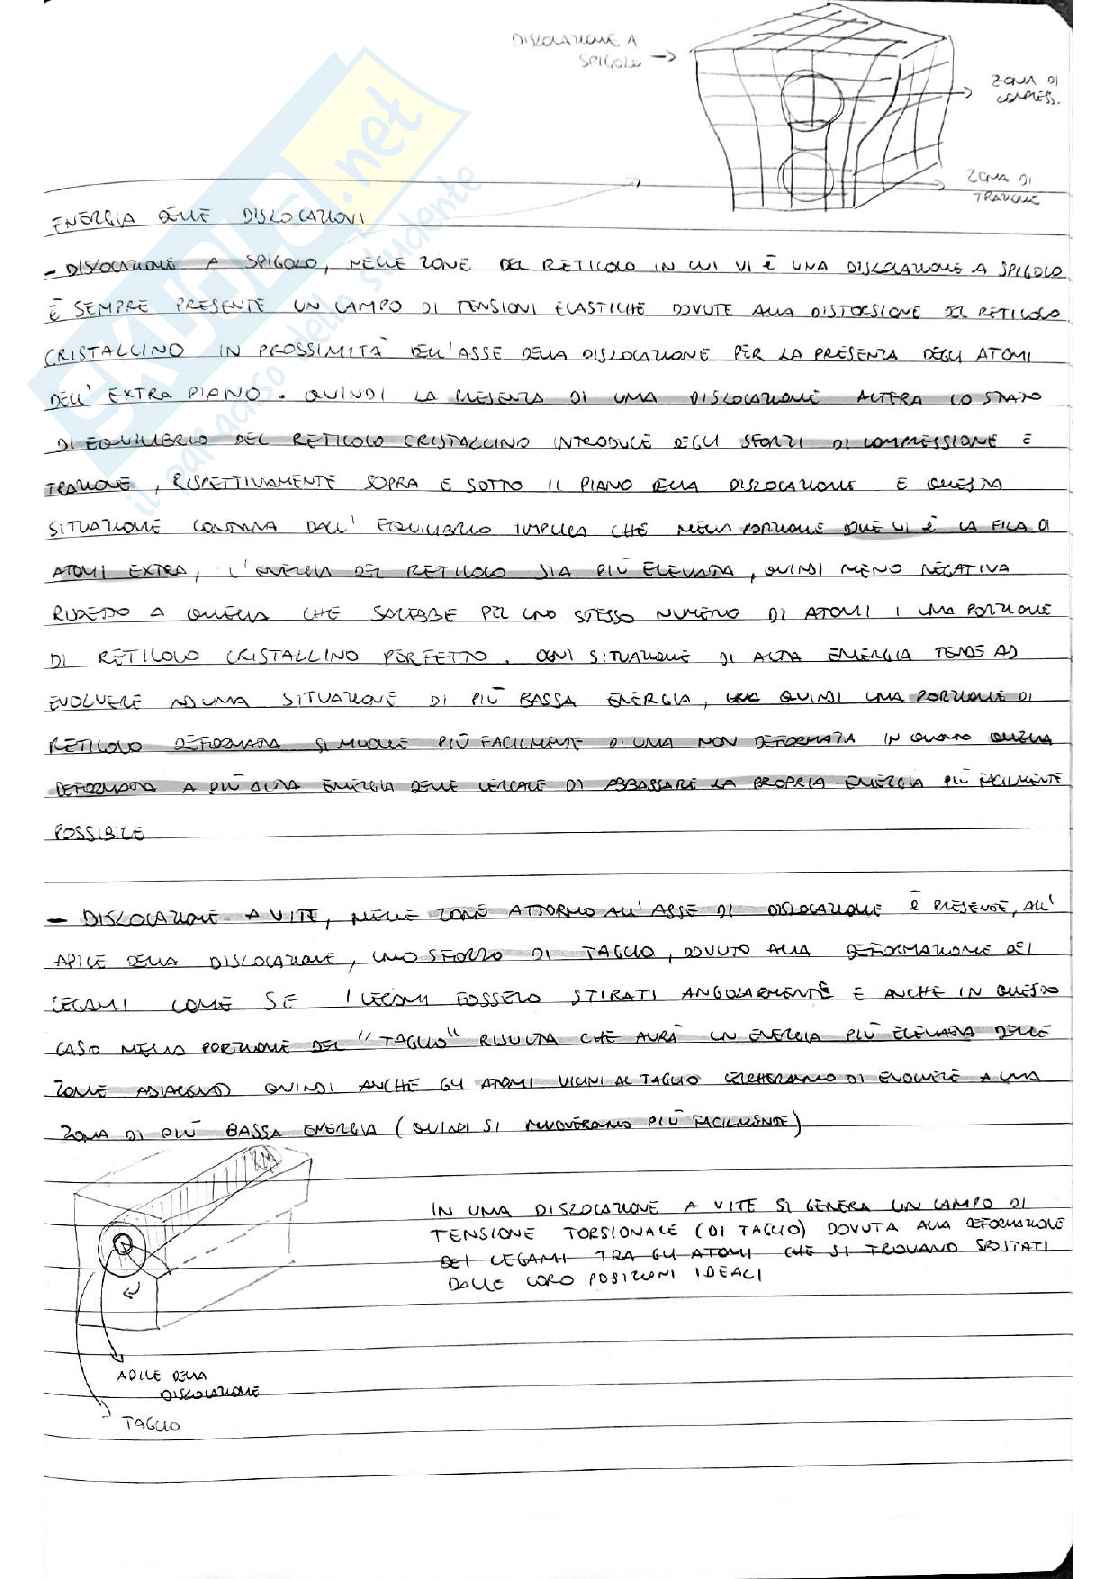 DISLOCAZIONE A
SPIGOLO
ZONA DI
COMPRESS.
ZONA DI
TRAZIONE
ENERGIA DELLE DISLOCAZIONI
- DISLOCAZIONE A SPIGOLO, NELLE ZONE DEL RETICOLO IN CUI VI È UNA DISLOCAZIONE A SPIGOLO
È SEMPRE PRESENTE UN CAMPO DI TENSIONI ELASTICHE DOVUTE ALLA DISTORSIONE DEL RETICOLO
CRISTALLINO IN PROSSIMITÀ DELL'ASSE DELLA DISLOCAZIONE PER LA PRESENZA DEGLI ATOMI
DELL'EXTRA PIANO. QUINDI LA PRESENZA DI UNA DISLOCAZIONE ALTERA LO STATO
DI EQUILIBRIO DEL RETICOLO CRISTALLINO INTRODUCE DEGLI SFORZI DI COMPRESSIONE E
TRAZIONE, RISPETTIVAMENTE SOPRA E SOTTO IL PIANO DELLA DISLOCAZIONE E QUESTA
SITUAZIONE LONTANA DALL'EQUILIBRIO IMPLICA CHE NELLA PORZIONE DOVE VI È LA FILA DI
ATOMI EXTRA, L'ENERGIA DEL RETICOLO SIA PIÙ ELEVATA, QUINDI MENO NEGATIVA
RISPETTO A QUELLA CHE SAREBBE PER UNO STESSO NUMERO DI ATOMI I UNA PORZIONE
DI RETICOLO CRISTALLINO PERFETTO. OGNI SITUAZIONE DI ALTA ENERGIA TENDE AD
EVOLVERE AD UNA SITUAZIONE DI PIÙ BASSA ENERGIA, QUINDI UNA PORZIONE DI
RETICOLO DEFORMATA SI MUOVE PIÙ FACILMENTE DI UNA NON DEFORMATA IN QUANTO QUELLA
DEFORMATA A PIÙ ALTA ENERGIA DEVE CERCARE DI ABBASSARE LA PROPRIA ENERGIA PIÙ FACILMENTE
POSSIBILE
- DISLOCAZIONE A VITE, NELLE ZONE ATTORNO ALL'ASSE DI DISLOCAZIONE È PRESENTE, ALL'
APICE DELLA DISLOCAZIONE, UNO SFORZO DI TAGLIO, DOVUTO ALLA DEFORMAZIONE DEI
LEGAMI COME SE I LEGAMI FOSSERO STIRATI ANGOLARMENTE E ANCHE IN QUESTO
CASO NELLA PORZIONE DEL "TAGLIO" RISULTA CHE AVRÀ UN ENERGIA PIÙ ELEVATA DELLE
ZONE ADIACENTI QUINDI ANCHE GLI ATOMI VICINI AL TAGLIO CERCHERANNO DI EVOLVERE A UNA
ZONA DI PIÙ BASSA ENERGIA (QUINDI SI MUOVERANNO PIÙ FACILMENTE)
IN UNA DISLOCAZIONE A VITE SI GENERA UN CAMPO DI
TENSIONE TORSIONALE (DI TAGLIO) DOVUTA ALLA DEFORMAZIONE
DEI LEGAMI TRA GLI ATOMI CHE SI TROVANO SPOSTATI
DALLE LORO POSIZIONI IDEALI
APICE DELLA
DISLOCAZIONE
TAGLIO
SKUOLA.net
il paradiso dello studente